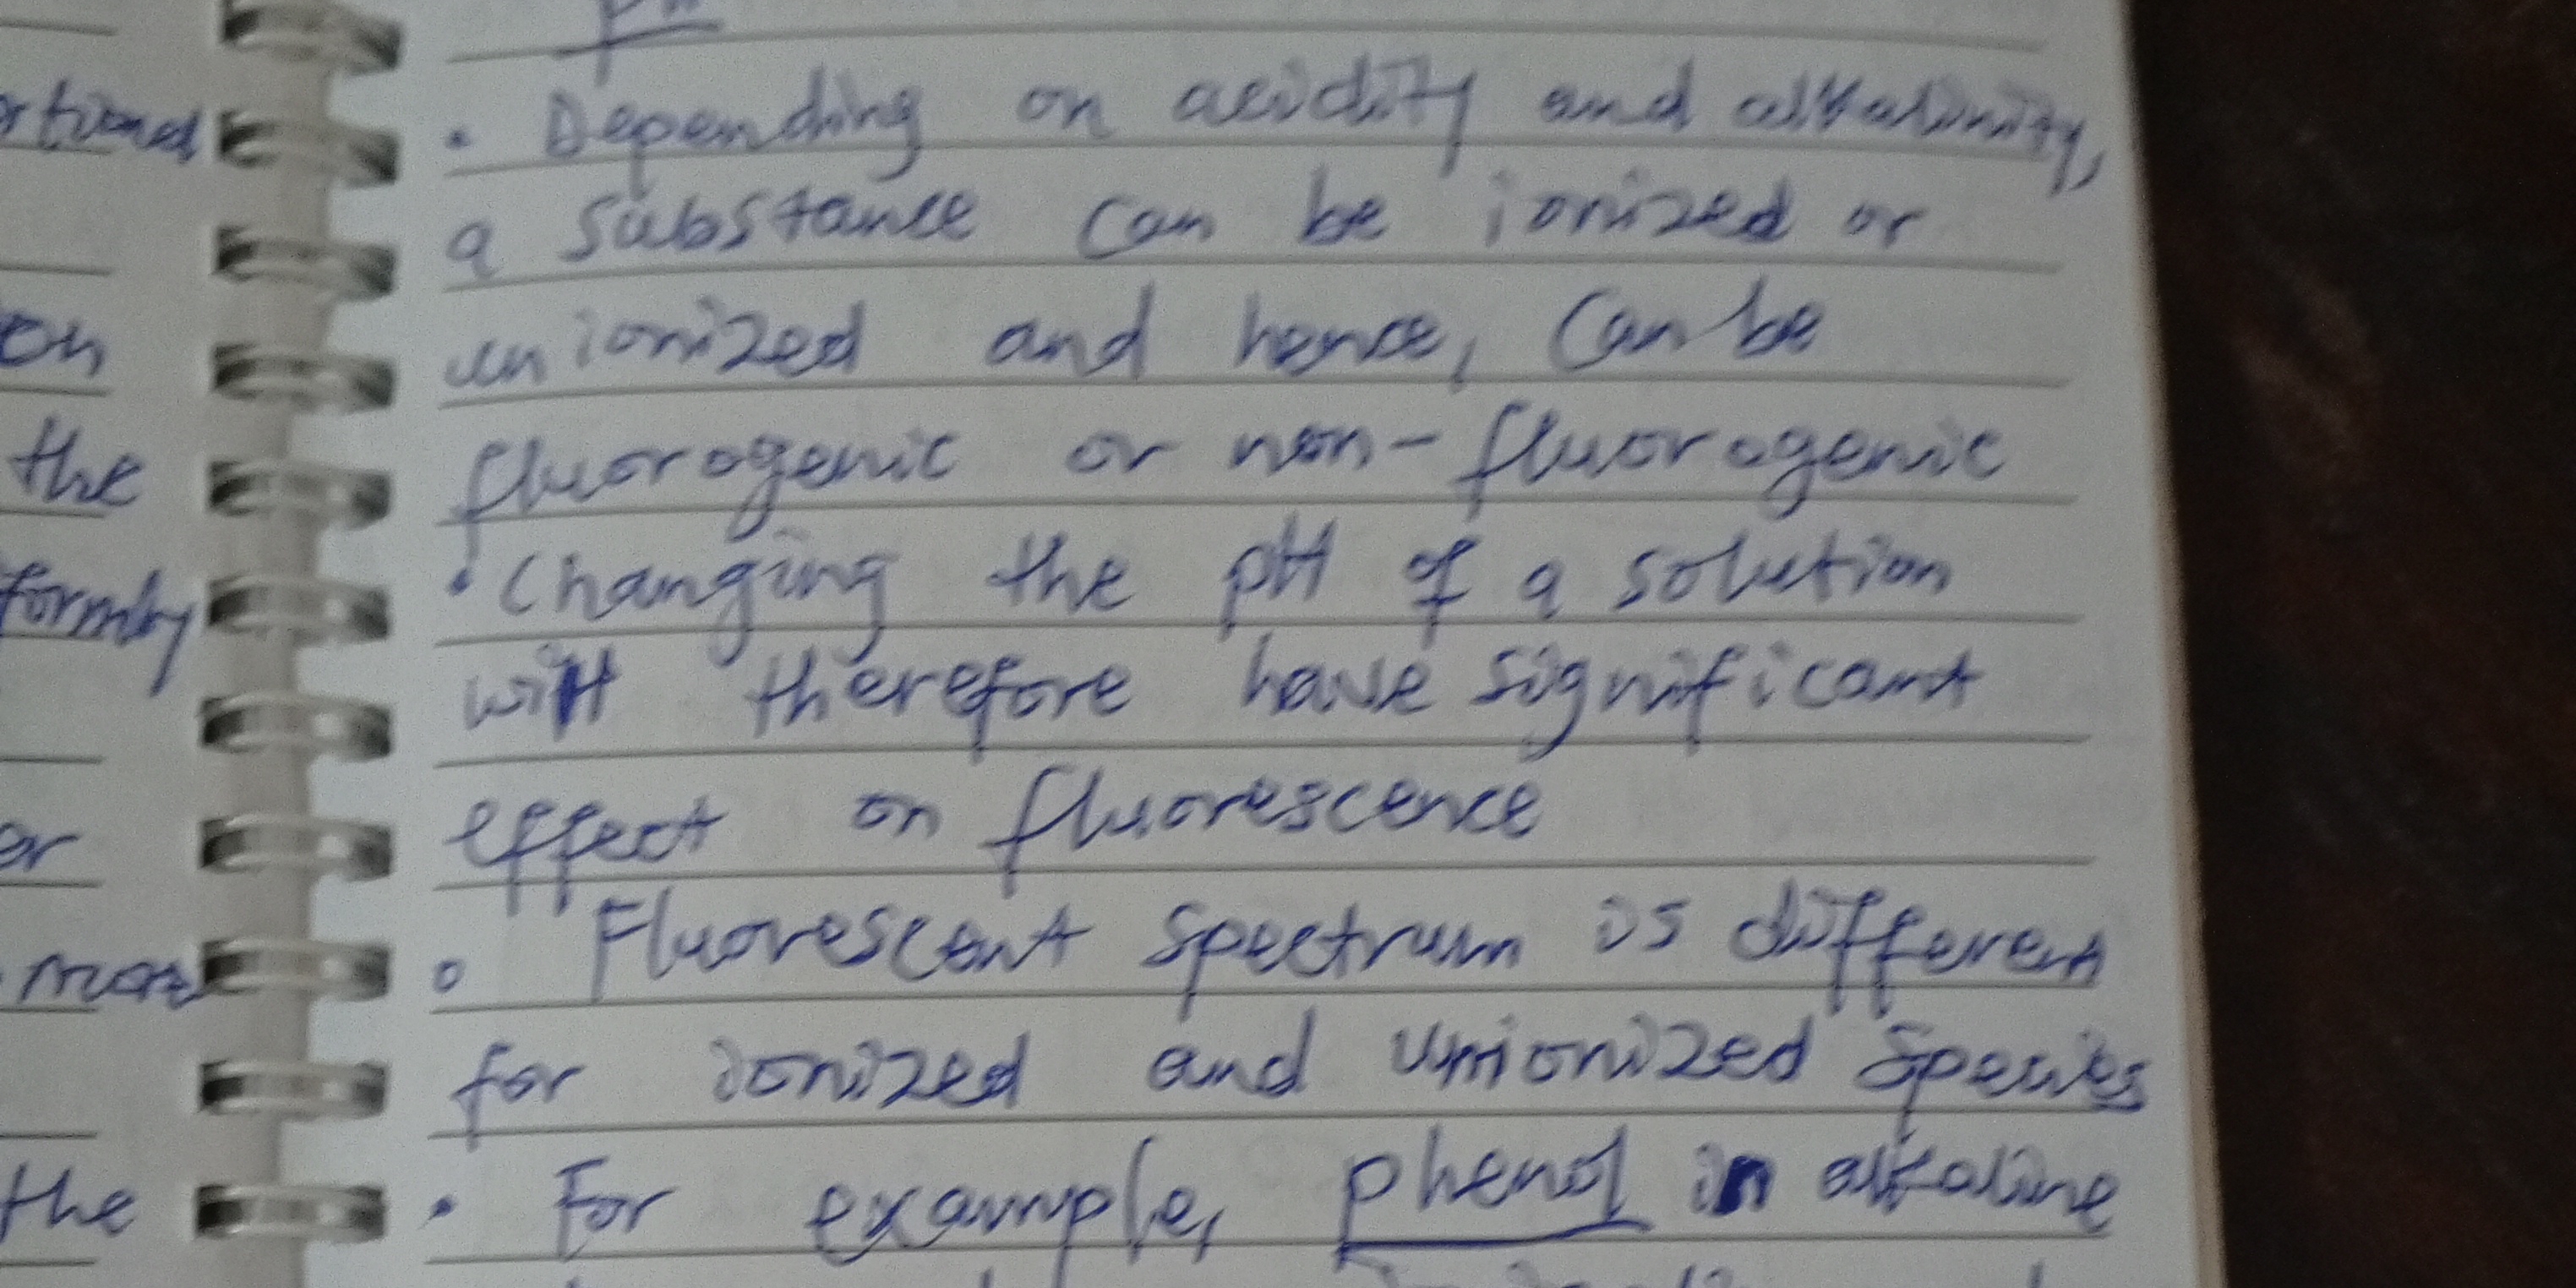 pH
• Depending on acidity and alkalinity,
a substance can be ionized or
unionized and hence, can be
fluorogenic or non-fluorogenic
• Changing the pH of a solution
will therefore have significant
effect on fluorescence
• Fluorescent spectrum is different
for ionized and unionized species
• For example, phenol in alkaline
on
the
er
the